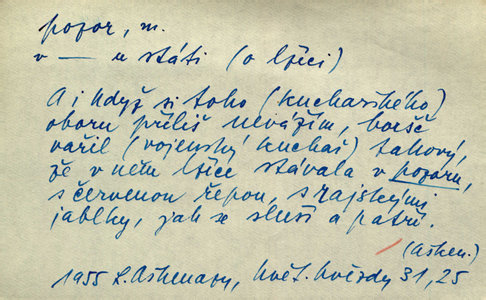 pozor, m.
v — u státi (o lžíci)
A i když si toho (kuchařského)
oboru příliš nevážím, boršč
vařil (vojenský kuchař) takový,
že v něm lžíce stávala v pozoru,
s červenou řepou, s rajskými
jablky, jak se sluší a patří.
(Ashen.)
1955 L. Ashkenazy, Květ. hvězdy 31, 25